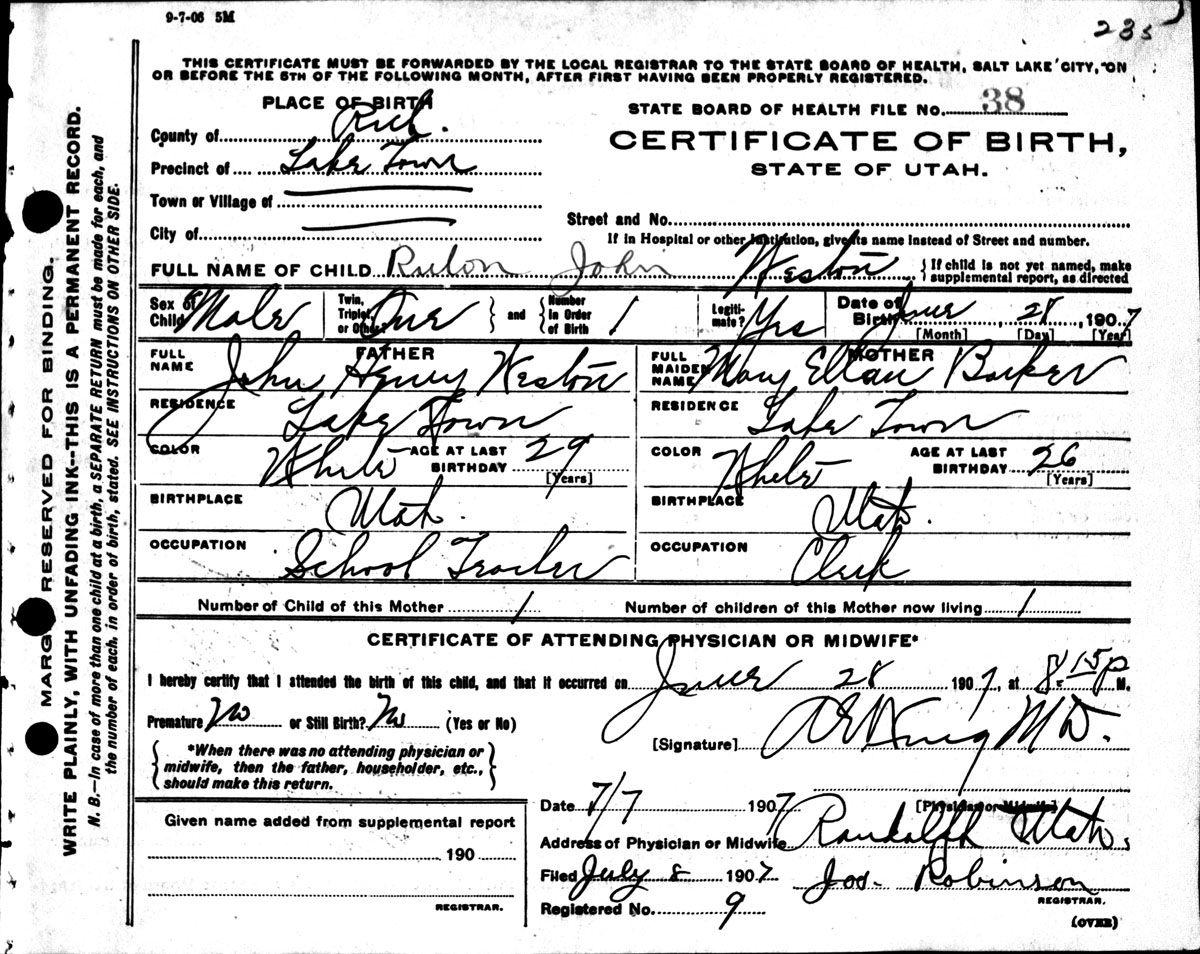 9-7-06 5M
235
THIS CERTIFICATE MUST BE FORWARDED BY THE LOCAL REGISTRAR TO THE STATE BOARD OF HEALTH, SALT LAKE CITY, ON
OR BEFORE THE 5TH OF THE FOLLOWING MONTH, AFTER FIRST HAVING BEEN PROPERLY REGISTERED.
PLACE OF BIRTH
County of Rich.
Precinct of Lake Town
Town or Village of
City of
STATE BOARD OF HEALTH FILE No. 38
CERTIFICATE OF BIRTH,
STATE OF UTAH.
Street and No.
If in Hospital or other Institution, give its name instead of Street and number.
FULL NAME OF CHILD Rulon John Weston { If child is not yet named, make
supplemental report, as directed
Sex of Child Male
Twin, Triplet, or Other? One } and { Number in Order of Birth 1
Legiti-mate? Yes
Date of Birth June, 28, 1907
[Month] [Day] [Year]
FATHER
FULL NAME John Henry Weston
RESIDENCE Lake Town
COLOR White AGE AT LAST BIRTHDAY 29
[Years]
BIRTHPLACE Utah.
OCCUPATION School Teacher
MOTHER
FULL MAIDEN NAME Mary Ellan Barker
RESIDENCE Lake Town
COLOR White AGE AT LAST BIRTHDAY 26
[Years]
BIRTHPLACE Utah.
OCCUPATION Clerk
Number of Child of this Mother 1 Number of children of this Mother now living 1
CERTIFICATE OF ATTENDING PHYSICIAN OR MIDWIFE*
I hereby certify that I attended the birth of this child, and that it occurred on June 28 1907, at 8:15 P M.
Premature No or Still Birth? No (Yes or No)
[Signature] M D.
{ *When there was no attending physician or
midwife, then the father, householder, etc.,
should make this return. }
Date 7/7 1907 [Physician or Midwife]
Address of Physician or Midwife Randolph Utah.
Filed July 8 1907 Jos. Robinson
REGISTRAR.
Registered No. 9
(OVER)
Given name added from supplemental report
190
REGISTRAR.
MARGIN RESERVED FOR BINDING.
WRITE PLAINLY, WITH UNFADING INK--THIS IS A PERMANENT RECORD.
N. B.—In case of more than one child at a birth, a SEPARATE RETURN must be made for each, and
the number of each, in order of birth, stated. SEE INSTRUCTIONS ON OTHER SIDE.